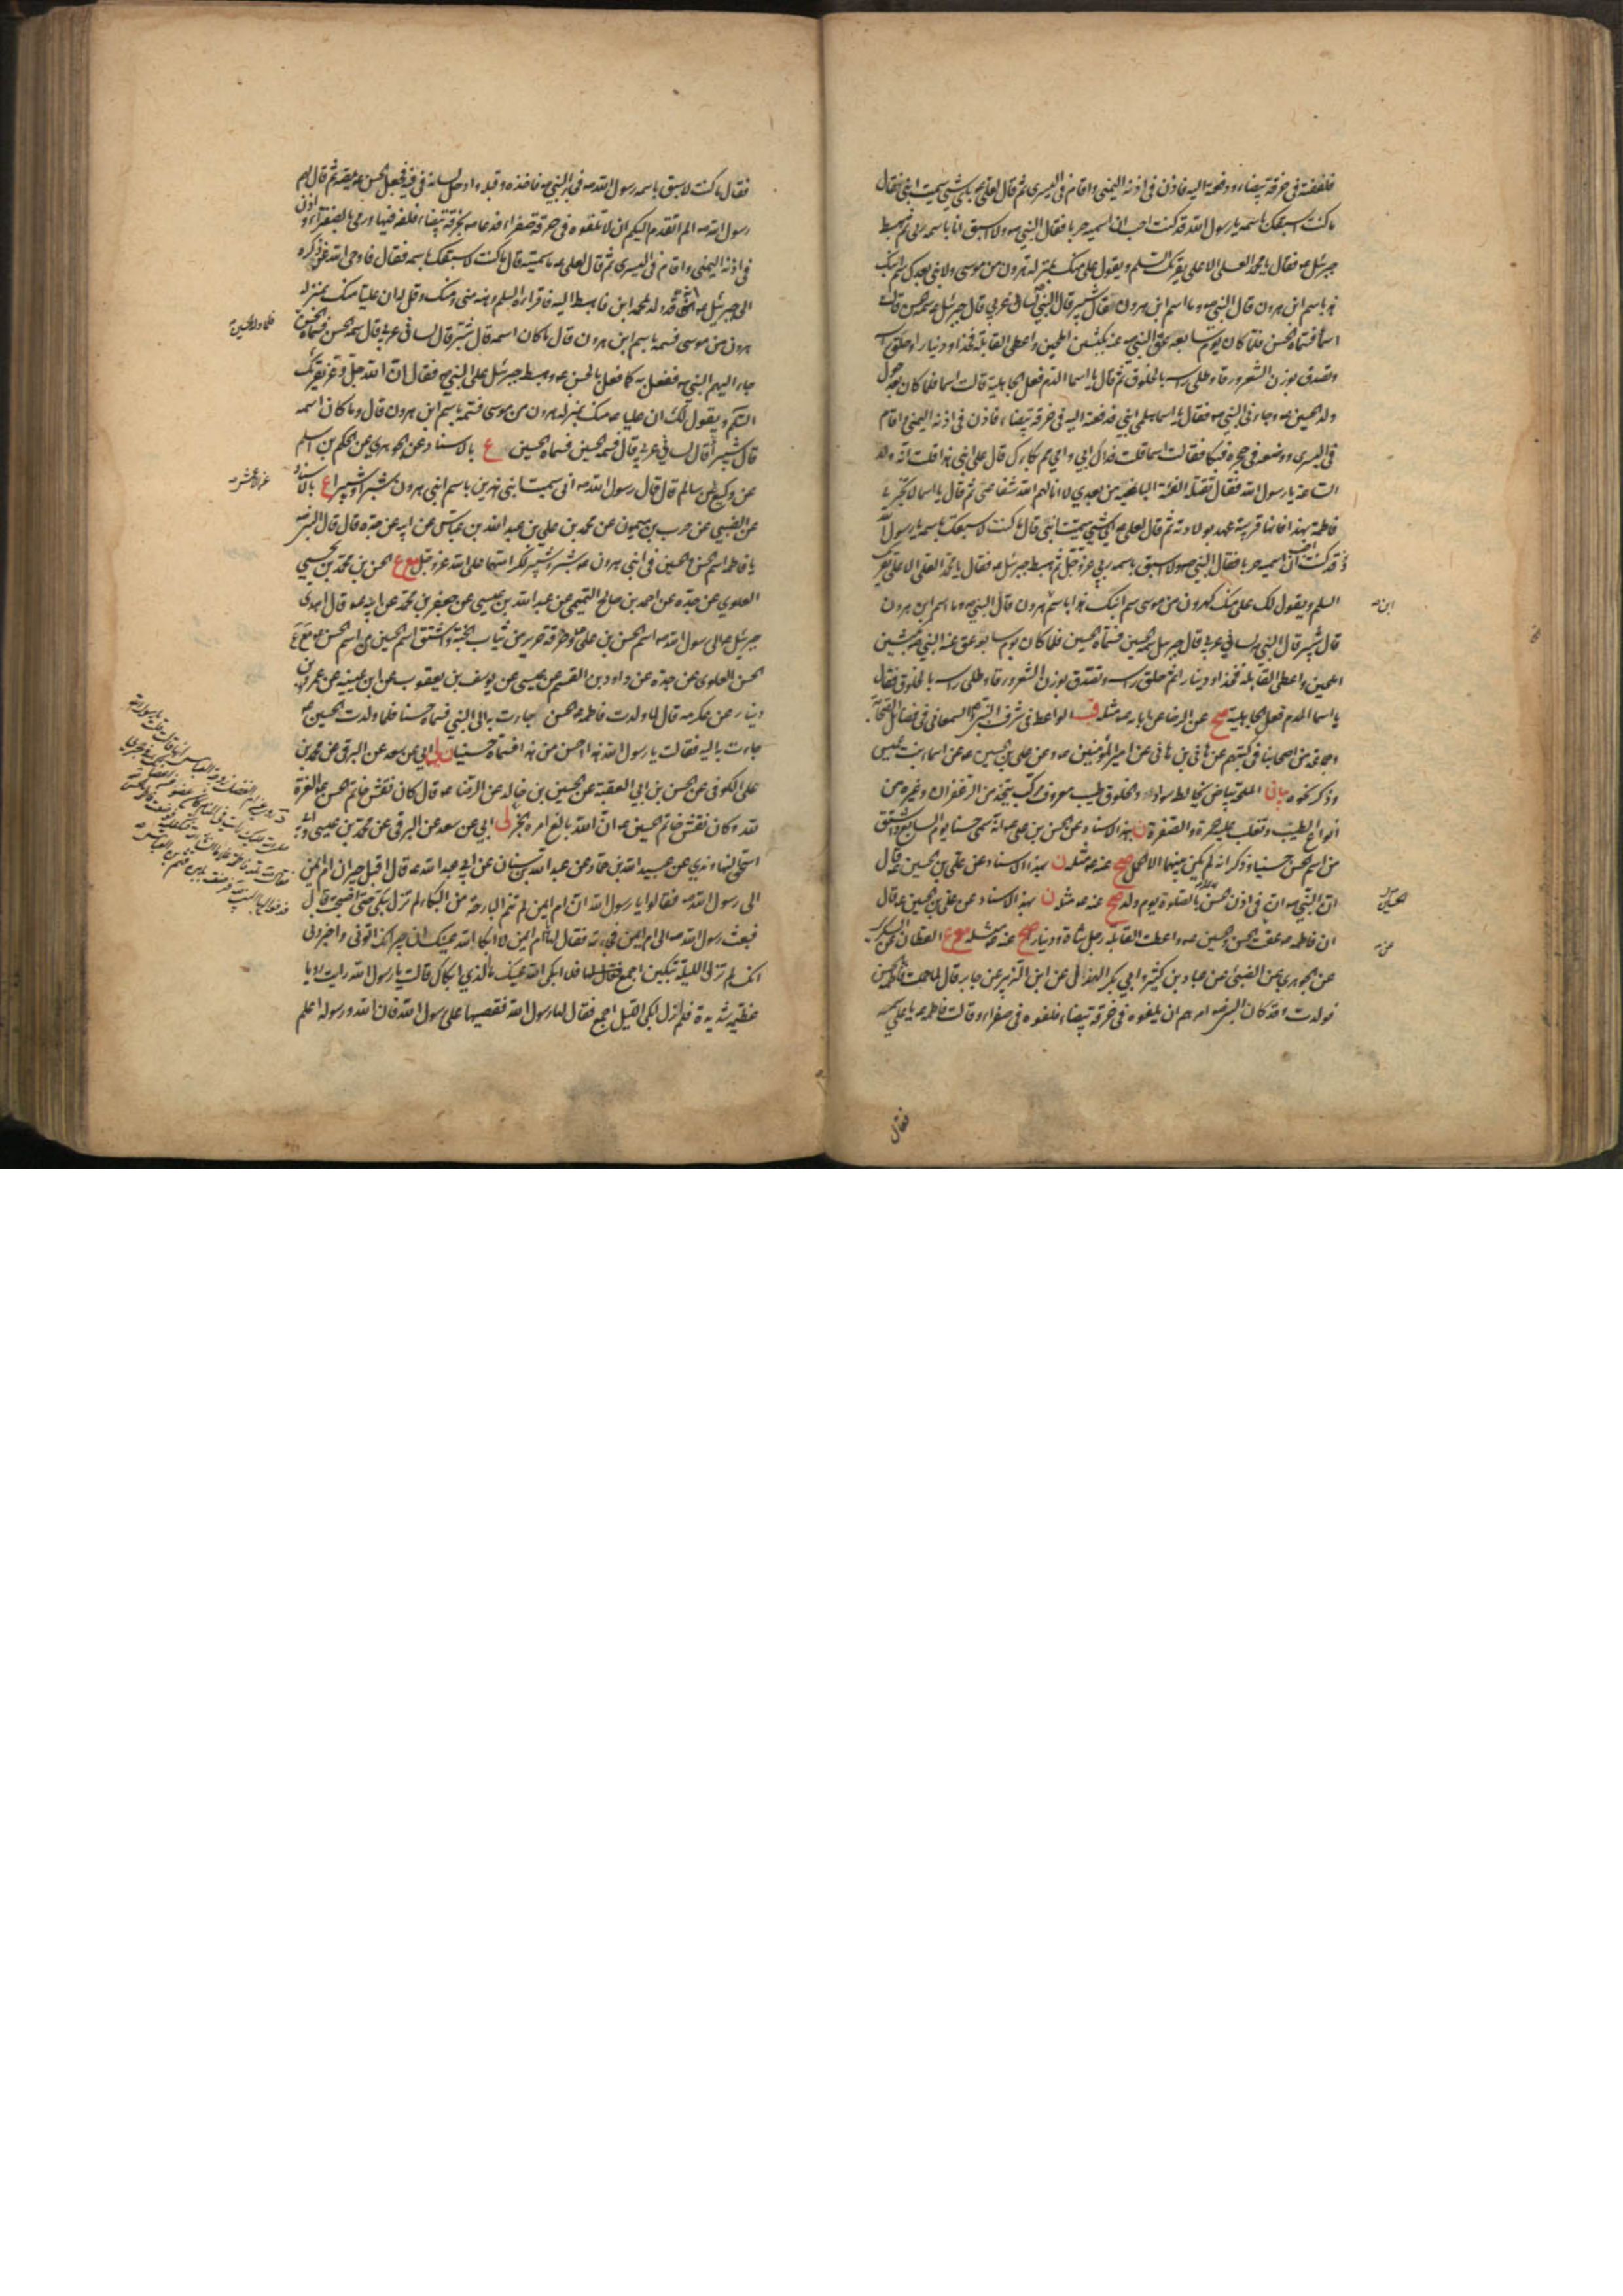 فلففته في خرقة بيضاء ودفعته اليه فاذن في اذنه اليمنى واقام في اليسرى ثم قال لعلي ع باي شيء سميت ابني فقال
ما كنت اسبقك باسمه يا رسول الله قد كنت احب ان اسميه حربا فقال النبي ص ولا اسبق انا باسمه ربي ثم هبط
جبرئيل ع فقال يا محمد العلي الاعلى يقرئك السلم ويقول علي منك بمنزلة هرون من موسى ولا نبي بعدك سم ابنك
هذا باسم ابن هرون قال النبي ص وما اسم ابن هرون فقال شبر قال النبي لساني عربي قال جبرئيل سمه الحسن قالت
اسما فسماه الحسن فلما كان يوم سابعه عق النبي ص عنه بكبشين املحين واعطى القابلة فخذا ودينارا وحلق راسه
وتصدق بوزن الشعر ورقا وطلى راسه بالخلوق ثم قال يا اسما الدم فعل الجاهلية قالت اسما فلما كان بعد حول
ولد الحسين ع وجاءني النبي ص فقال يا اسما هلمي ابني فدفعته اليه في خرقة بيضاء فاذن في اذنه اليمنى واقام
في اليسرى ووضعه في حجره فبكا فقالت اسما قلت فداك ابي وامي مم بكاءك قال على ابني هذا قلت انه ولد
الساعة يا رسول الله فقال تقتله الفئة الباغية من بعدي لا انالهم الله شفاعتي ثم قال يا اسما لا تخبري
فاطمة بهذا فانها قريبة عهد بولادته ثم قال لعلي ع اي شيء سميت ابني قال ما كنت لاسبقك باسمه يا رسول الله
وقد كنت احب ان اسميه حربا فقال النبي ص ولا اسبق باسمه ربي عز وجل ثم هبط جبرئيل ع فقال يا محمد العلي الاعلى يقرئك
السلم ويقول لك علي منك كهرون من موسى سم ابنك هذا باسم هرون قال النبي ص وما اسم ابن هرون
ابن
قال شبير قال النبي ص لساني عربي قال جبرئيل سمه الحسين فسماه الحسين فلما كان يوم سابعه عق عنه النبي ص بكبشين
املحين واعطى القابلة فخذا ودينارا ثم حلق راسه وتصدق بوزن الشعر ورقا وطلى راسه بالخلوق فقال
يا اسما الدم فعل الجاهلية صح عن الرضا عن ابائه ع مثله قب الواعظ في شرف النبي ص السمعاني في فضائل الصحابة
وجماعة من اصحابنا في كتبهم عن هاني بن هاني عن امير المؤمنين ع وعن علي بن الحسين ع وعن اسماء بنت عميس
وذكر نحوه بيان الملحة بياض يخالط سواد والخلوق طيب معروف مركب يتخذ من الزعفران وغيره من
انواع الطيب وتغلب عليه حمرة والصفرة ن بهذا الاسناد عن الحسن بن علي ع انه سمى حسنا يوم السابع واشتق
من اسم الحسن حسينا وذكر انه لم يكن بينهما الا الحمل صح عنه ع مثله ن بهذا الاسناد عن علي بن الحسين ع قال
ان النبي ص اذن في اذن الحسن بالصلوة يوم ولد صح عنه ع مثله ن بهذا الاسناد عن علي بن الحسين ع قال
ان فاطمة ع عقت عن الحسن والحسين ع واعطت القابلة رجل شاة ودينار صح عنه ع مثله مع ع القطان عن السكري
عن
عن الجوهري عن الضبي عن عباد بن كثير وابي بكر الهذلي عن ابن الزبير عن جابر قال لما حملت فاطمة بالحسن
فولدت وقد كان النبي ص امرهم ان يلفوه في خرقة بيضاء فلفوه في صفراء وقالت فاطمة ع يا علي سمه
فقال
فقال ما كنت لاسبق باسمه رسول الله ص فجاء النبي ص فاخذه وقبله وادخل لسانه في فيه فجعل الحسن ع يمصه ثم قال لهم
رسول الله ص الم اتقدم اليكم ان لا تلفوه في خرقة صفراء فدعا ص بخرقة بيضاء فلفه فيها ورمى بالصفراء واذن
في اذنه اليمنى واقام في اليسرى ثم قال لعلي ع ما سميته قال ما كنت لاسبقك باسمه فقال فاوحى الله عز ذكره
الى جبرئيل ع انه قد ولد لمحمد ابن فاهبط اليه فاقراه السلم وهنه مني ومنك وقل له ان عليا منك بمنزلة
هرون من موسى فسمه باسم ابن هرون قال ما كان اسمه قال شبر قال لساني عربي قال سمه الحسن فسماه الحسن
فلما ولد الحسين
جاء اليهم النبي ص ففعل به كما فعل بالحسن ع وهبط جبرئيل على النبي ص فقال ان الله جل وعز يقرئك
السلم ويقول لك ان عليا ع منك بمنزلة هرون من موسى فسمه باسم ابن هرون قال وما كان اسمه
قال شبيرا قال لساني عربي قال فسمه الحسين فسماه الحسين ع بالاسناد عن الجوهري عن الحكم بن اسلم
عن وكيع عن سالم قال قال رسول الله ص اني سميت ابني هذين باسم ابني هرون شبرا وشبيرا ع بالاسناد
عن الاعمش
عن الضبي عن حرب بن ميمون عن محمد بن علي بن عبد الله بن عباس عن ابيه عن جده قال قال النبي ص
يا فاطمة اسم الحسن والحسين في ابني هرون ع شبر وشبير لكرامتهما على الله عز وجل مع ع الحسن بن محمد بن يحيى
العلوي عن جده عن احمد بن صالح التميمي عن عبد الله بن عيسى عن جعفر بن محمد عن ابيه ع قال اهدى
جبرئيل ع الى رسول الله ص اسم الحسن بن علي ع وخرقة حرير من ثياب الجنة واشتق اسم الحسين من اسم الحسن ع مع ع
الحسن العلوي عن جده عن داود بن القسم عن عيسى عن يوسف بن يعقوب عن ابن عيينه عن عمرو بن
دينار عن عكرمه قال لما ولدت فاطمه ع الحسن جاءت به الى النبي فسماه حسنا فلما ولدت الحسين ع
جاءت به اليه فقالت يا رسول الله هذا احسن من هذا فسماه حسينا ن لي ابي عن سعد عن البرقي عن محمد بن
علي الكوفي عن الحسن بن ابي العقبة عن الحسين بن خالد عن الرضا ع قال كان نقش خاتم الحسن ع العزة
لله وكان نقش خاتم الحسين ع ان الله بالغ امره الخبر لي ابي عن سعد عن البرقي عن محمد بن عيسى وابي
اسحاق النهاوندي عن عبيد الله بن حماد عن عبد الله بن سنان عن ابي عبد الله ع قال اقبل جيران ام ايمن
الى رسول الله ص فقالوا يا رسول الله ان ام ايمن لم تنم البارحة من البكاء لم تزل تبكي حتى اصبحت قال
فبعث رسول الله ص الى ام ايمن فجاءته فقال لها يا ام ايمن لا ابكى الله عينك ان جيرانك اتوني واخبروني
انك لم تزلي الليلة تبكين اجمع فلا ابكى الله عينك ما الذي ابكاك قالت يا رسول الله رايت رؤيا
عظيمة شديدة فلم ازل ابكي الليل اجمع فقال لها رسول الله ص فقصيها على رسول الله فان الله ورسوله اعلم